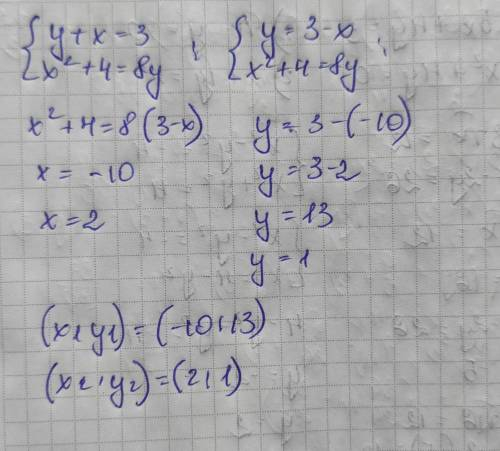 { y + x = 3 ; { y = 3 - x ;
x² + 4 = 8y x² + 4 = 8y
x² + 4 = 8(3 - x) y = 3 - (-10)
x = -10 y = 3 - 2
x = 2 y = 13
y = 1
(x₁ y₁) = (-10 ; 13)
(x₂ ; y₂) = (2 ; 1)